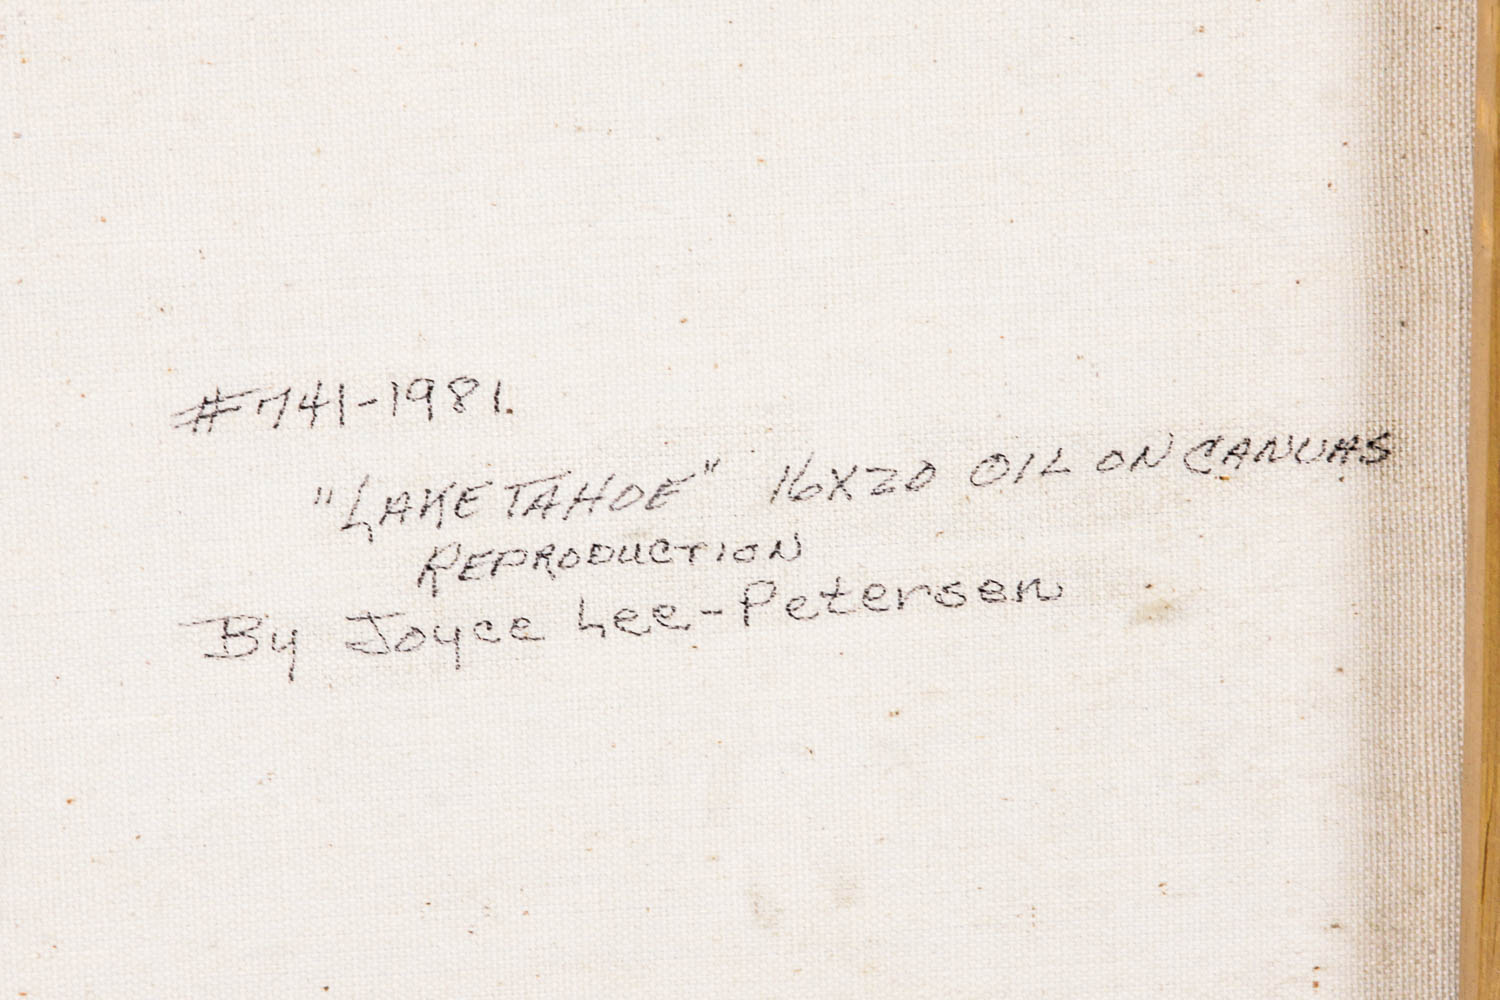 #741-1981.
"LAKE TAHOE" 16X20 OIL ON CANVAS
REPRODUCTION
By Joyce Lee-Petersen